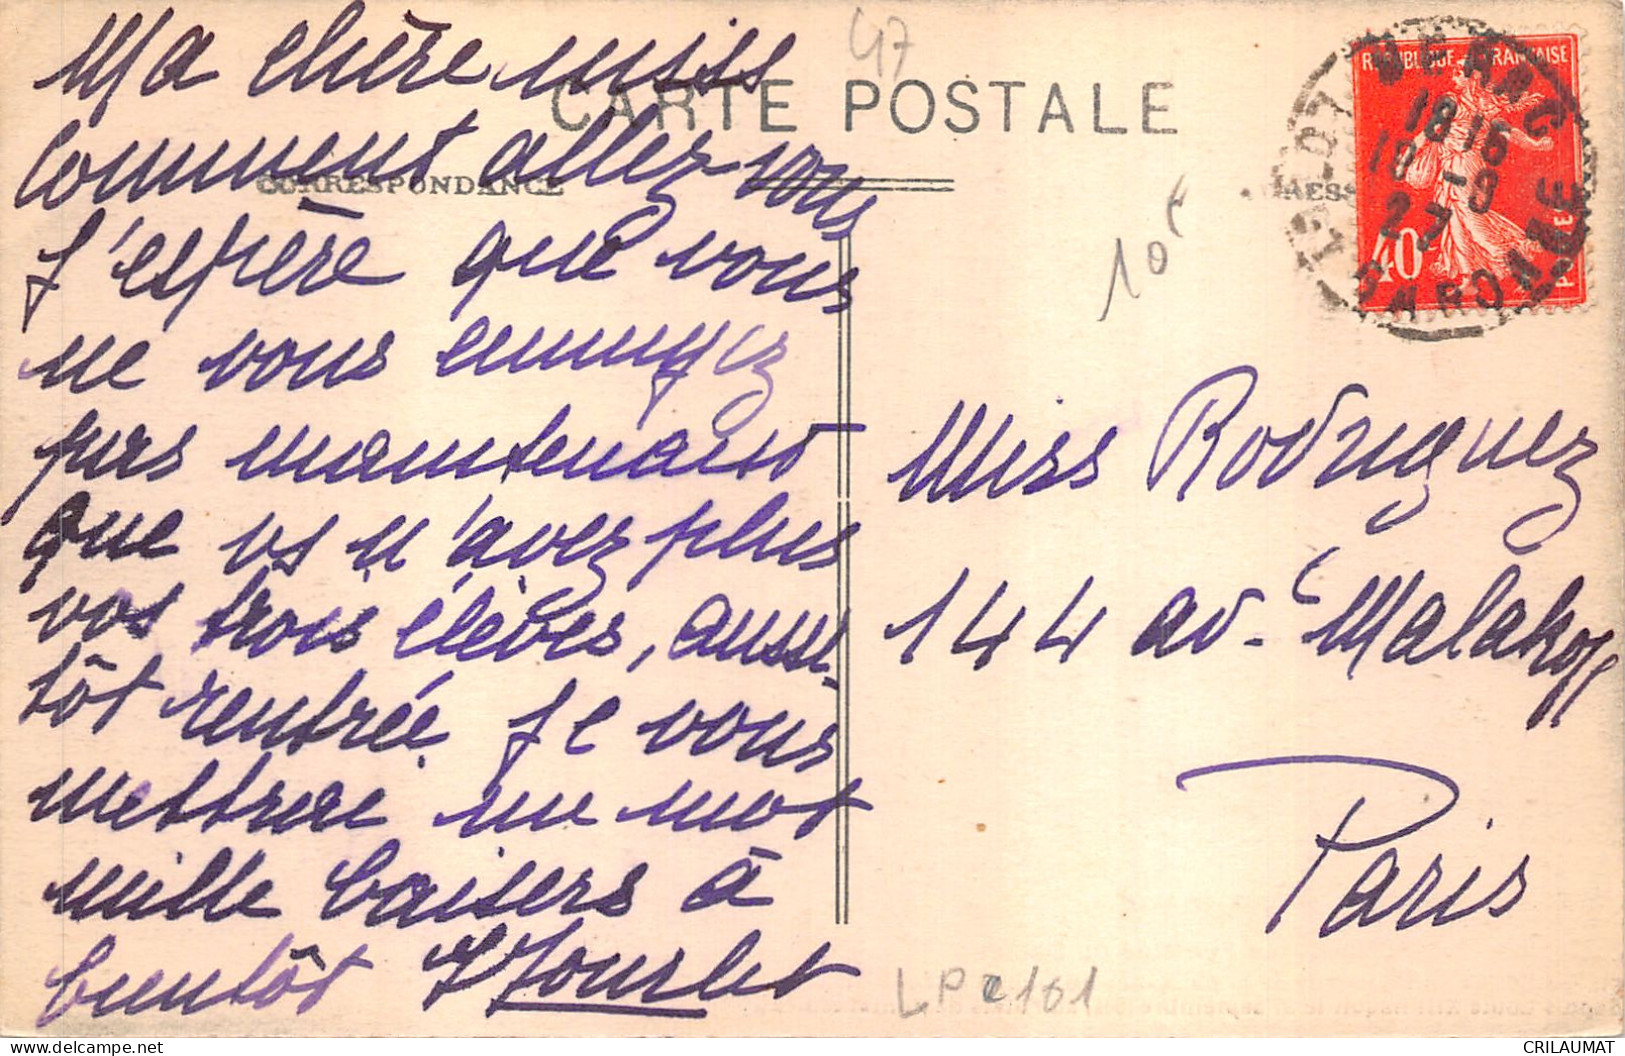 Ma chère miss
Comment allez vous
J'espère que vous
ne vous ennuyez
pas maintenant
que vs n'avez plus
vos trois élèves, aussi
tôt rentrée je vous
mettrai un mot
mille baisers à
bientôt
47
CARTE POSTALE
CORRESPONDANCE
10f
REPUBLIQUE FRANÇAISE
18 15
10 -9
27
40
GARONNE
Miss Rodriguez
144 av. Malakoff
Paris
LPC101
CRILAUMAT